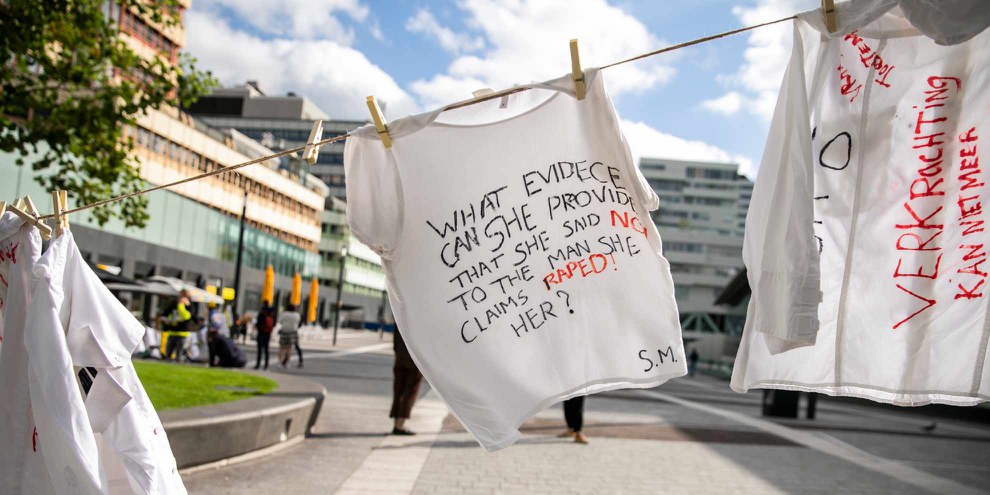 WHAT EVIDECE
CAN SHE PROVIDE
THAT SHE SAID NO
TO THE MAN SHE
CLAIMS RAPED?
HER?
S.M.
VERKRACHTING
KAN NIET MEER